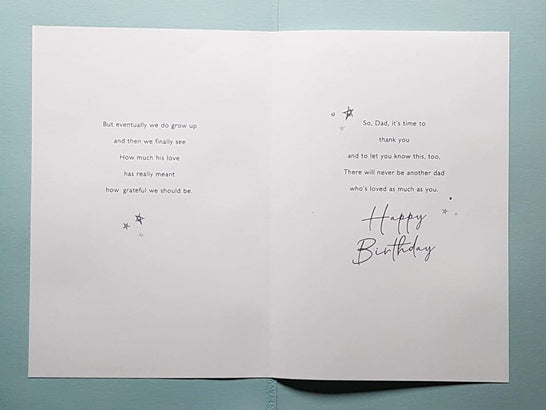 But eventually we do grow up
and then we finally see
How much his love
has really meant
how grateful we should be.
So, Dad, it's time to
thank you
and to let you know this, too,
There will never be another dad
who's loved as much as you.
Happy
Birthday